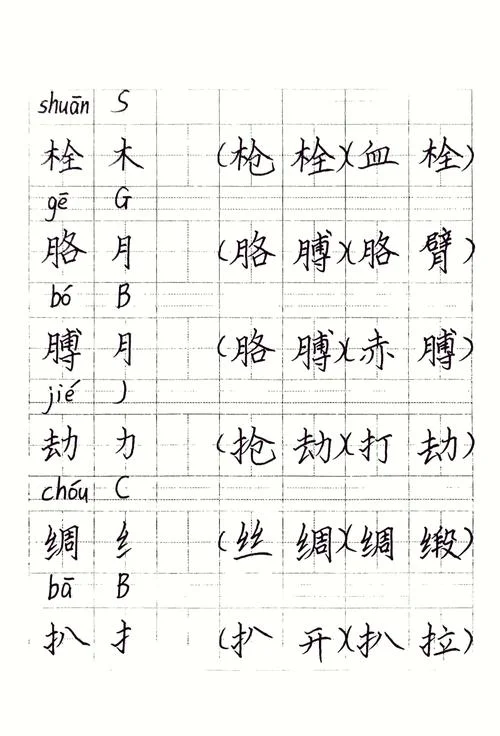 shuān S
栓 木 (枪 栓)(血 栓)
gē G
胳 月 (胳 膊)(胳 臂)
bó B
膊 月 (胳 膊)(赤 膊)
jié J
劫 力 (抢 劫)(打 劫)
chóu C
绸 纟 (丝 绸)(绸 缎)
bā B
扒 扌 (扒 开)(扒 拉)